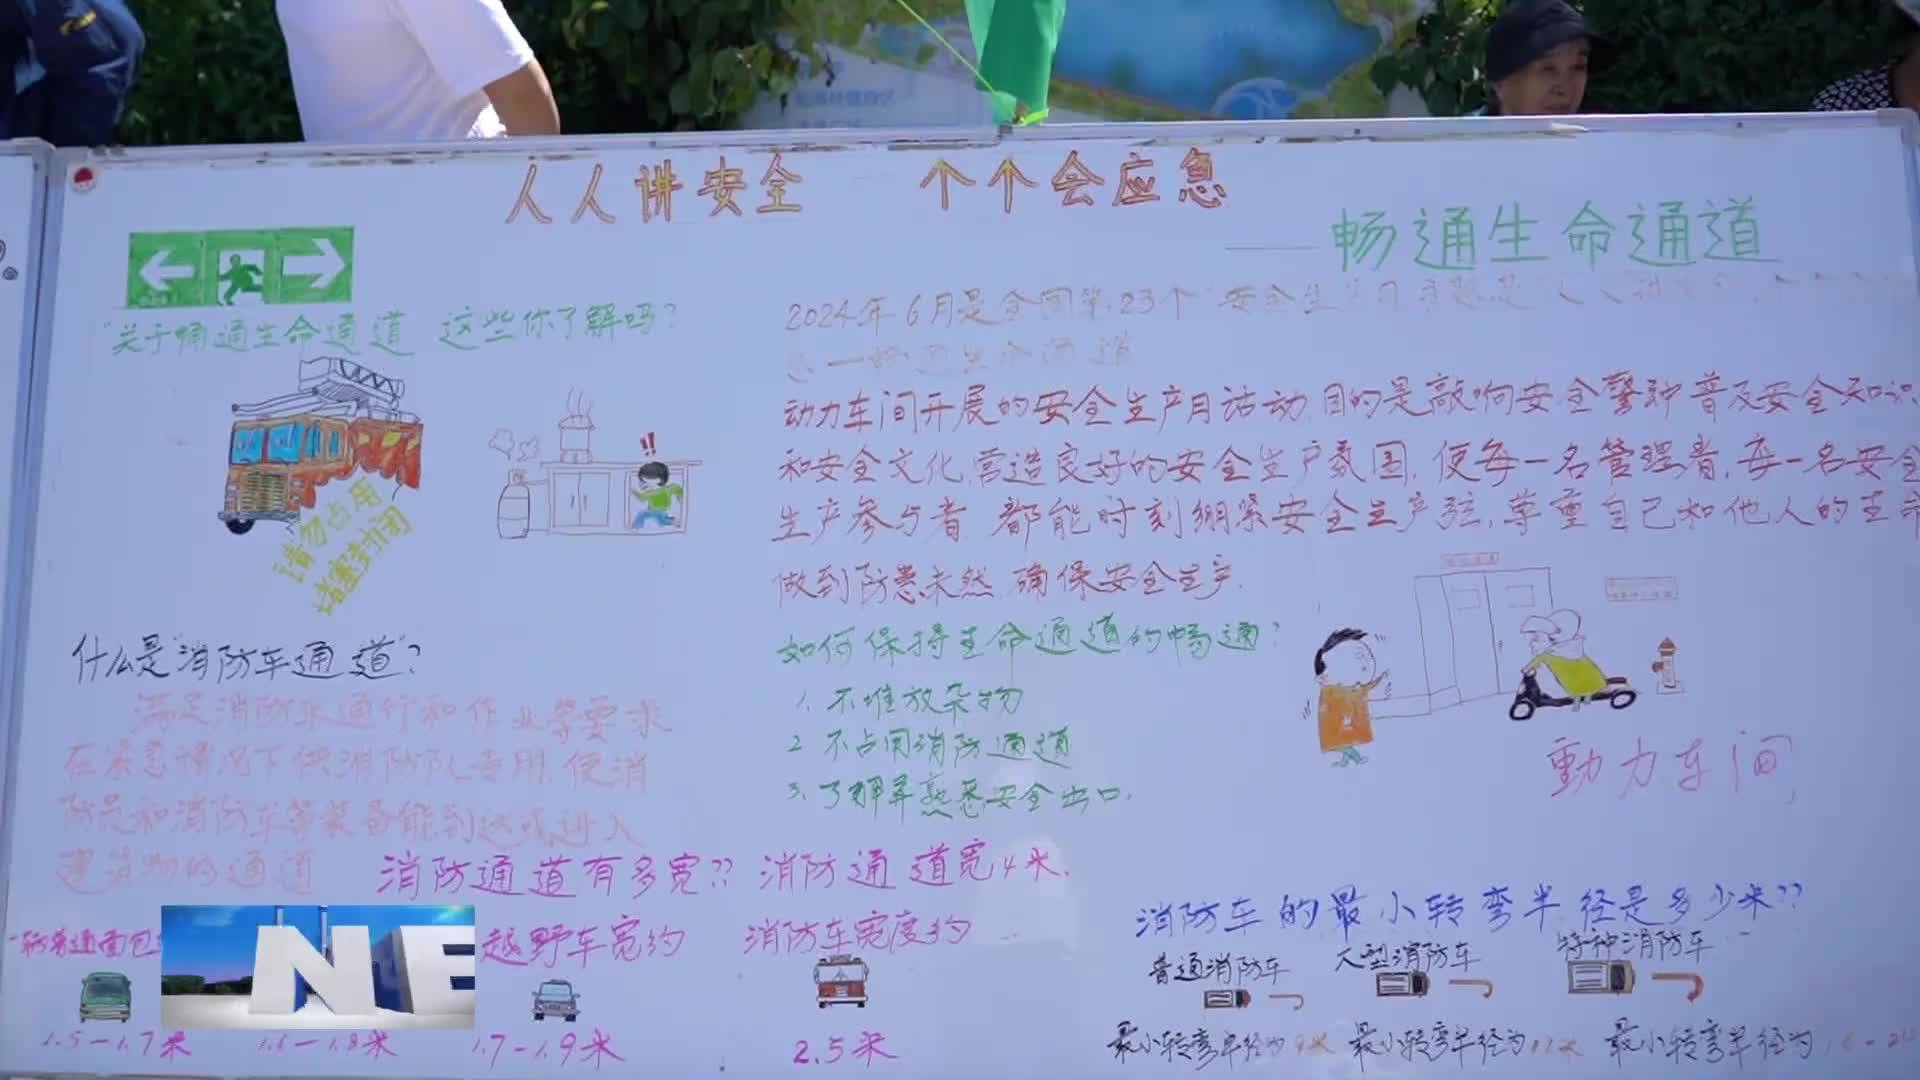 人人讲安全 个个会应急
——畅通生命通道
"关于畅通生命通道 这些你了解吗?
请勿占用
堵塞封闭
2024年6月是全国第23个"安全生
动力车间开展的安全生产月活动,目的是敲响安全警钟普及安全知识
和安全文化,营造良好的安全生产氛围,使每一名管理者,每一名安全
生产参与者 都能时刻绷紧安全生产弦,尊重自己和他人的生命
做到防患未然,确保安全生产.
什么是"消防车通道"?
满足消防车通行和作业等要求
在紧急情况下供消防队专用,使消
防员和消防车等装备能到达或进入
建筑物的通道
如何保持生命通道的畅通?
1. 不堆放杂物
2 不占用消防通道
3. 了解并熟悉安全出口.
動力车间
消防通道有多宽?? 消防通道宽4米.
一辆普通面包
NE
越野车宽约
消防车宽度约
1.5-1.7米
1.6-1.8米
1.7-1.9米
2.5米
消防车的最小转弯半径是多少米??
普通消防车
大型消防车
特种消防车
最小转弯半径为9米
最小转弯半径为12米
最小转弯半径为